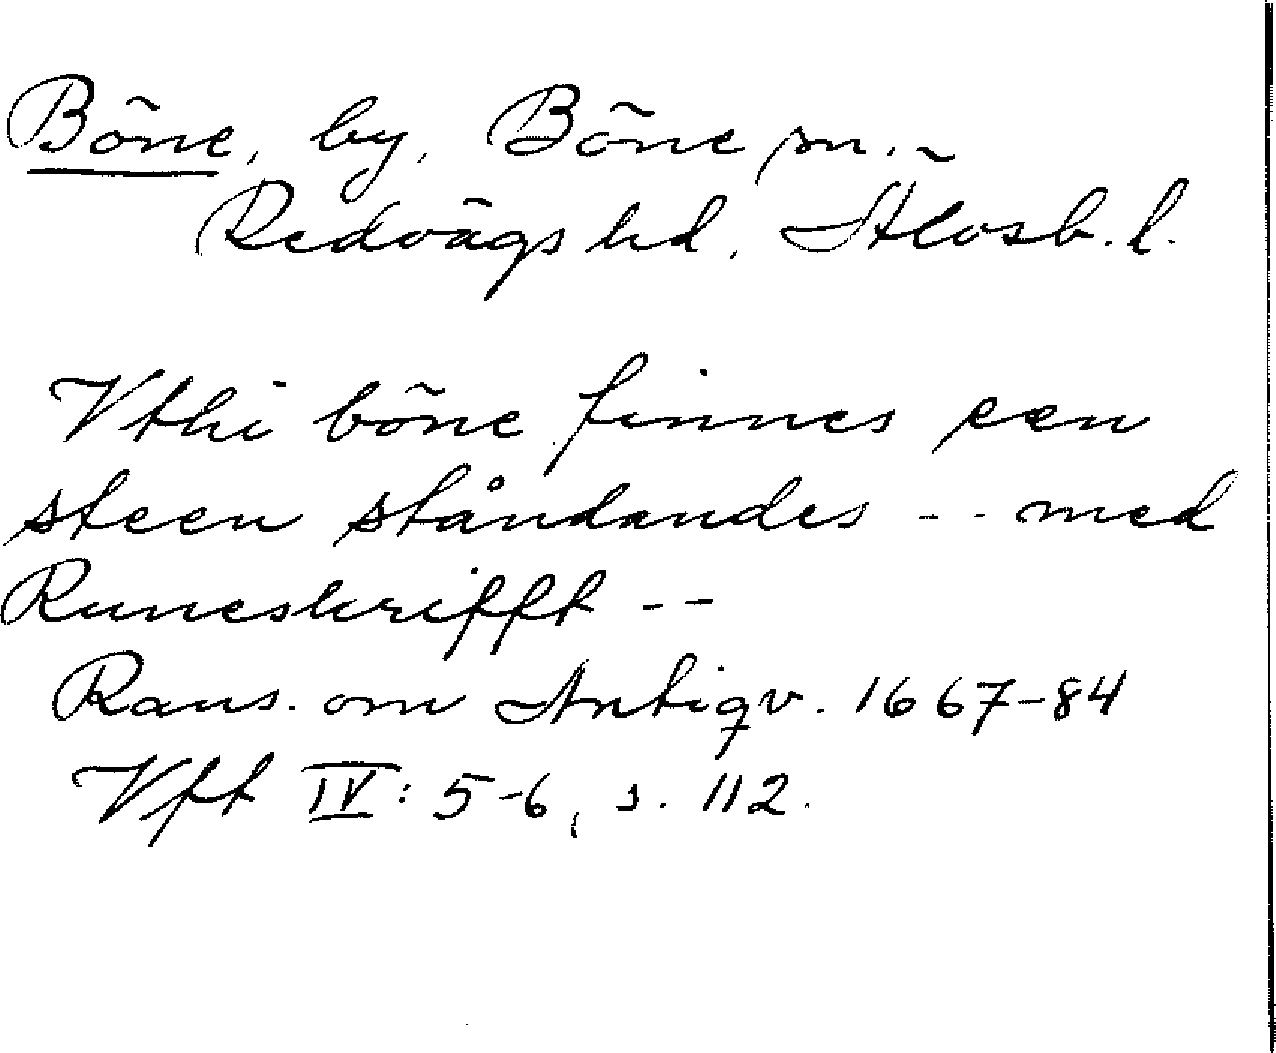 Böne, by, Böne sn. ~
Redvägs hd, Älvsb. l.
Vthi böne finnes een
steen ståndandes - - med
Runeskrifft - -
Rans. om Antiqv. 1667-84
Vft IV: 5-6, s. 112.